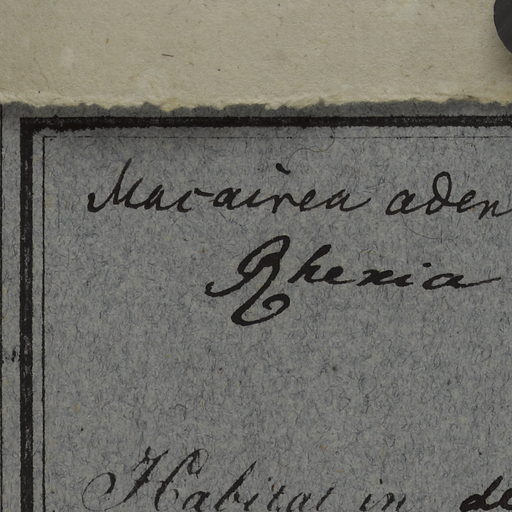 Macairea aden
Rhexia
Habitat in de